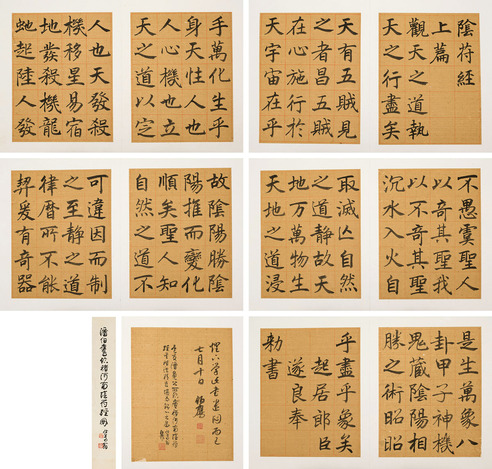 陰符經
上篇
觀天之道執
天之行盡矣
天有五賊見
之者昌五賊
在心施行於
天宇宙在乎
乎萬化生乎
身天性人也
人心機也立
天之道以定
人也天發殺
機移星易宿
地發殺機龍
虵起陸人發
不愚虞聖人
以奇其聖我
以不奇其聖
沉水入火自
取滅亡自然
之道靜故天
地万萬物生
天地之道浸
故陰陽勝陰
陽推而變化
順矣聖人知
自然之道不
可違因而制
之至靜之道
律曆所不能
契爰有奇器
是生萬象八
卦甲子神機
鬼藏陰陽相
勝之術昭昭
乎盡乎象矣
起居郎臣
遂良奉
勅書
七月十日 伯鷹
潘伯鷹臨褚河南陰符經冊